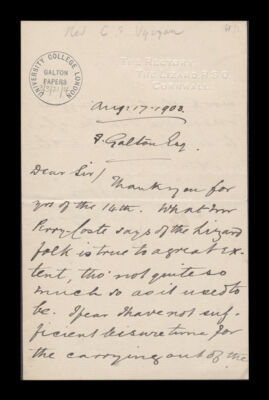 Rev C S Vyvyan
UNIVERSITY COLLEGE LONDON
GALTON
PAPERS
THE RECTORY
THE LIZARD R.S.O.
CORNWALL
Aug: 17. 1903.
F. Galton Esq.
Dear Sir/
Thank you for
yrs of the 14th. What
Perry-Coste says of the Lizard
folk is true to a great ex-
tent, tho' not quite so
much so as it used to
be. I fear I have not suf-
ficient leisure time for
the carrying out of the